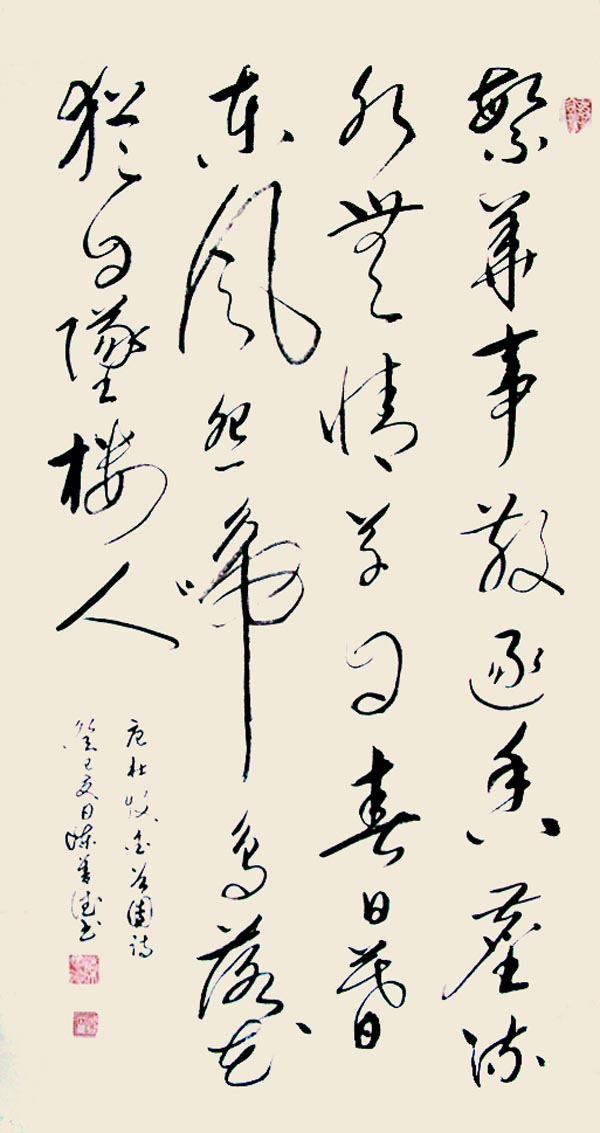 繁華事散逐香塵流
水無情草自春日暮
東風怨啼鳥落花
猶自墜樓人
唐杜牧金谷園詩
癸巳夏日陳善德書